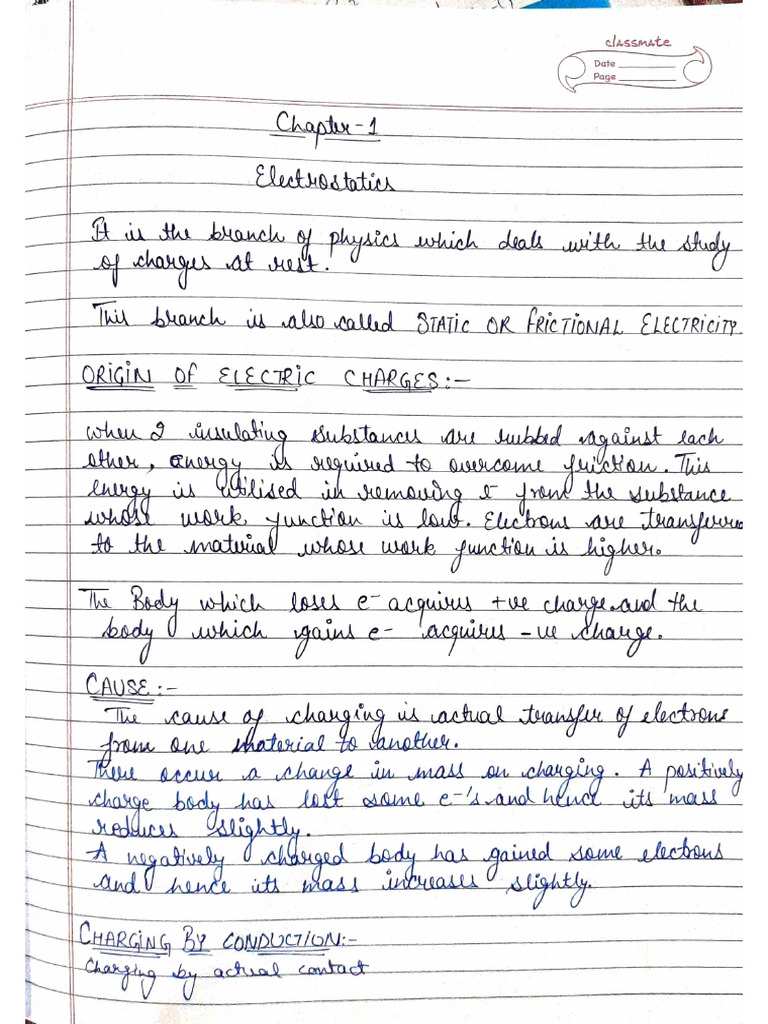 classmate
Date
Page
Chapter-1
Electrostatics
It is the branch of physics which deals with the study
of charges at rest.
This branch is also called STATIC OR FRICTIONAL ELECTRICITY.
ORIGIN OF ELECTRIC CHARGES:-
when 2 insulating substances are rubbed against each
other, energy is required to overcome friction. This
energy is utilised in removing e- from the substance
whose work function is low. Electrons are transferred
to the material whose work function is higher.
The Body which loses e- acquires +ve charge and the
body which gains e- acquires -ve charge.
CAUSE:-
The cause of charging is actual transfer of electrons
from one material to another.
There occur a change in mass on charging. A positively
charge body has lost some e-'s and hence its mass
reduces slightly.
A negatively charged body has gained some electrons
and hence its mass increases slightly.
CHARGING BY CONDUCTION:-
Charging by actual contact